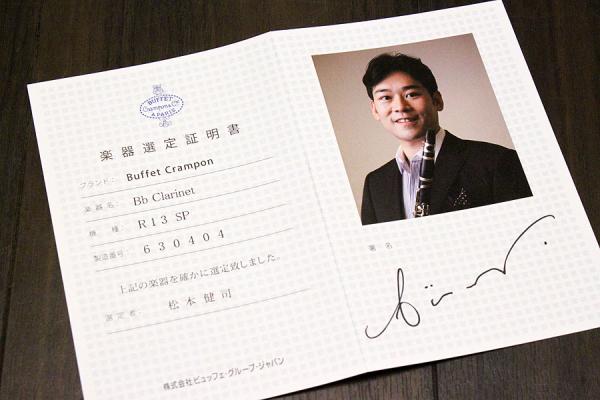 BUFFET
Crampon & Cie
A PARIS
楽器選定証明書
ブランド： Buffet Crampon
楽器名： Bb Clarinet
機種： R13 SP
製造番号： 630404
上記の楽器を確かに選定致しました。
選定者 松本健司
株式会社ビュッフェ・グループ・ジャパン
署名